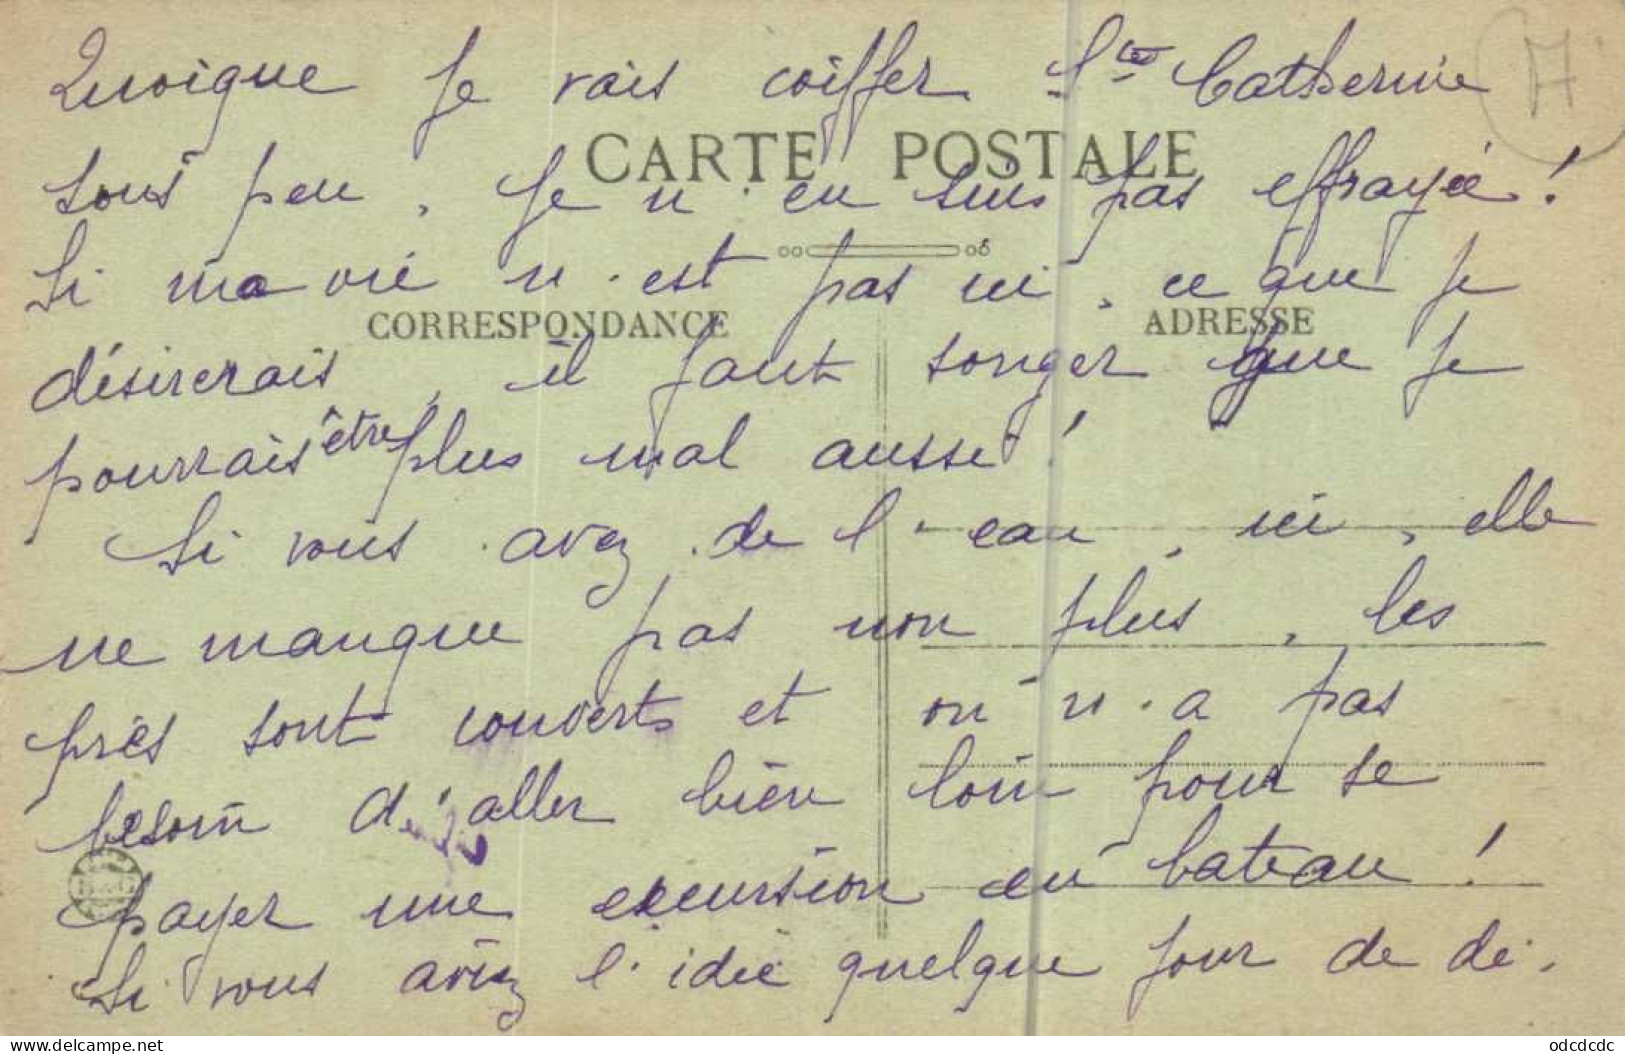 Quoique je vais coiffer Ste Catherine
CARTE POSTALE
sous peu, je n'en suis pas effrayée !
Si ma vie n'est pas ici, ce que je
CORRESPONDANCE
ADRESSE
désirerais, il faut songer que je
pourrais être plus mal aussi !
Si vous avez de l'eau, ici, elle
ne manque pas non plus, les
près sont couverts et on n'a pas
besoin d'aller bien loin pour se
payer une excursion en bateau !
Si vous aviez l'idée quelque jour de dé-
delcampe.net
odcdcdc
A